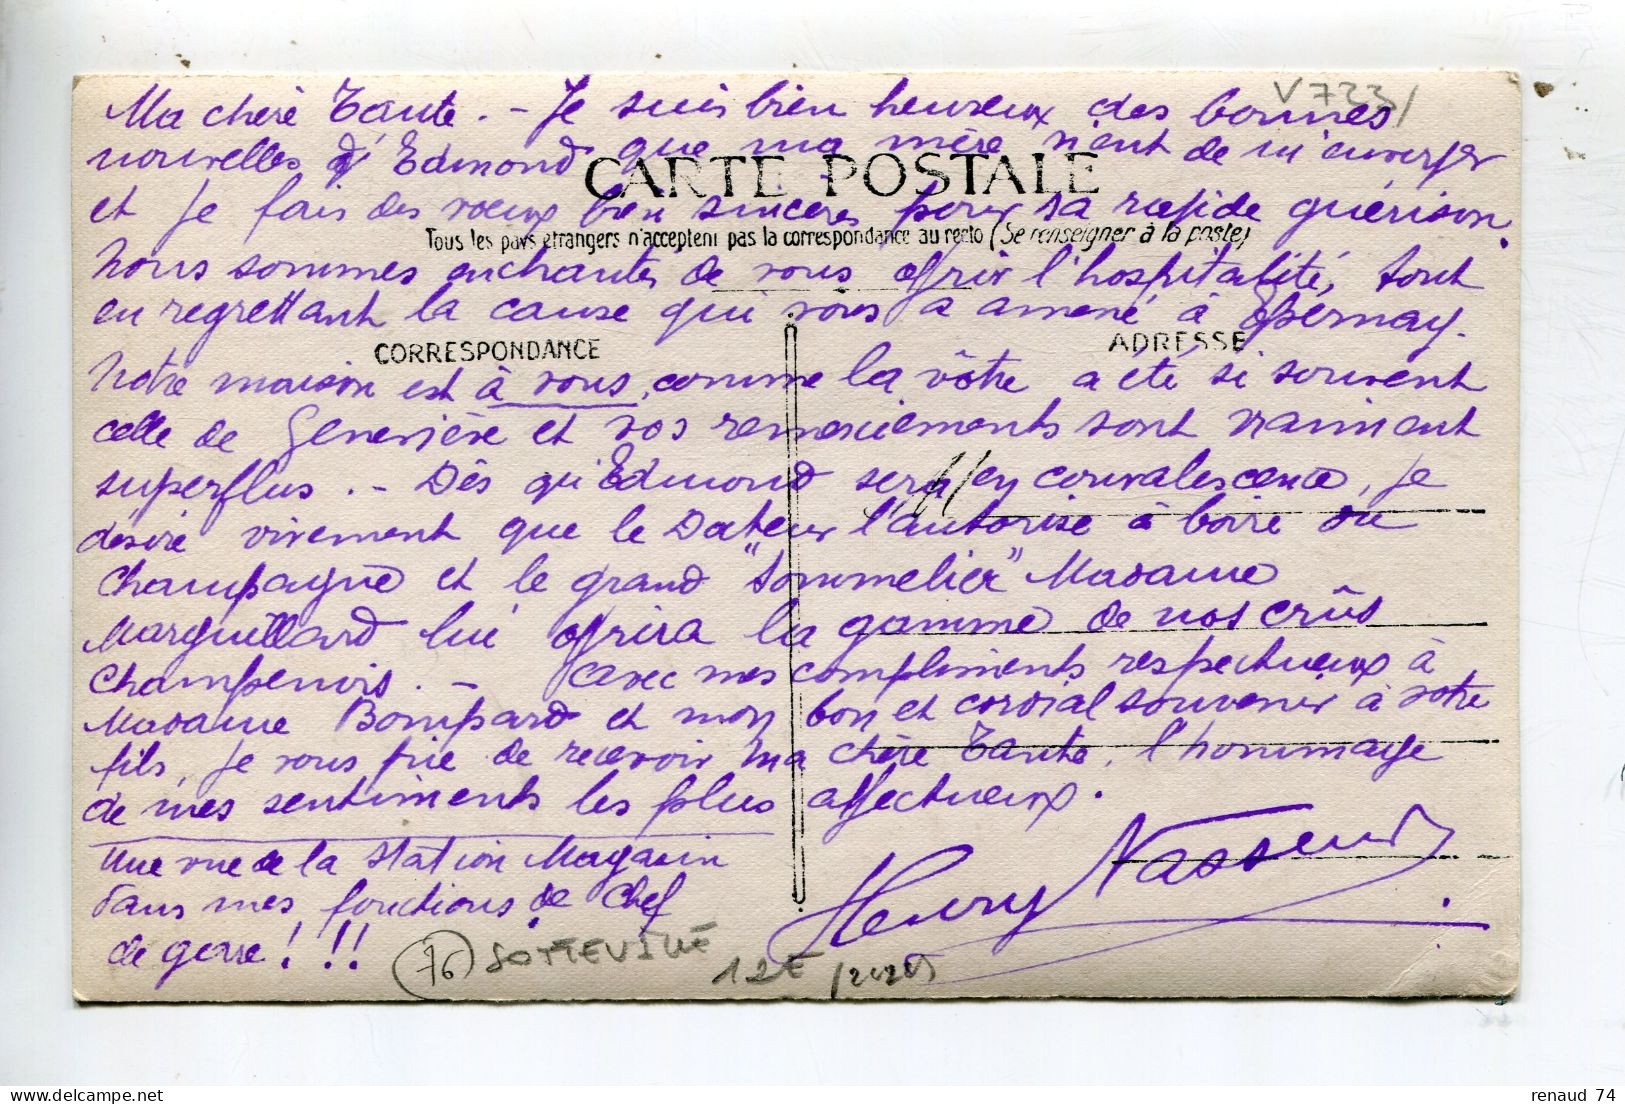 V733/
Ma chère Tante. - Je suis bien heureux des bonnes
nouvelles d'Edmond que ma mère vient de m'envoyer
CARTE POSTALE
et je fais des voeux bien sincères pour sa rapide guérison.
Tous les pays étrangers n'acceptent pas la correspondance au recto (Se renseigner à la poste)
Nous sommes enchantés de vous offrir l'hospitalité, tout
en regrettant la cause qui vous a amené à Epernay.
CORRESPONDANCE
ADRESSE
Notre maison est à vous, comme la vôtre a été si souvent
celle de Geneviève et vos remerciements sont vraiment
superflus. - Dès qu'Edmond sera en convalescence, je
désire vivement que le Docteur l'autorise à boire du
Champagne et le grand "Sommelier" Madame
Marguillard lui offrira la gamme de nos crûs
Champenois. - Avec mes compliments respectueux à
Madame Bompard et mon bon et cordial souvenir à votre
fils, je vous prie de recevoir ma chère Tante, l'hommage
de mes sentiments les plus affectueux.
Une vue de la Station Magasin
dans mes fonctions de Chef
de gare! !!
Henry Nasseur
76 SOTTEVILLE
12E
renaud 74